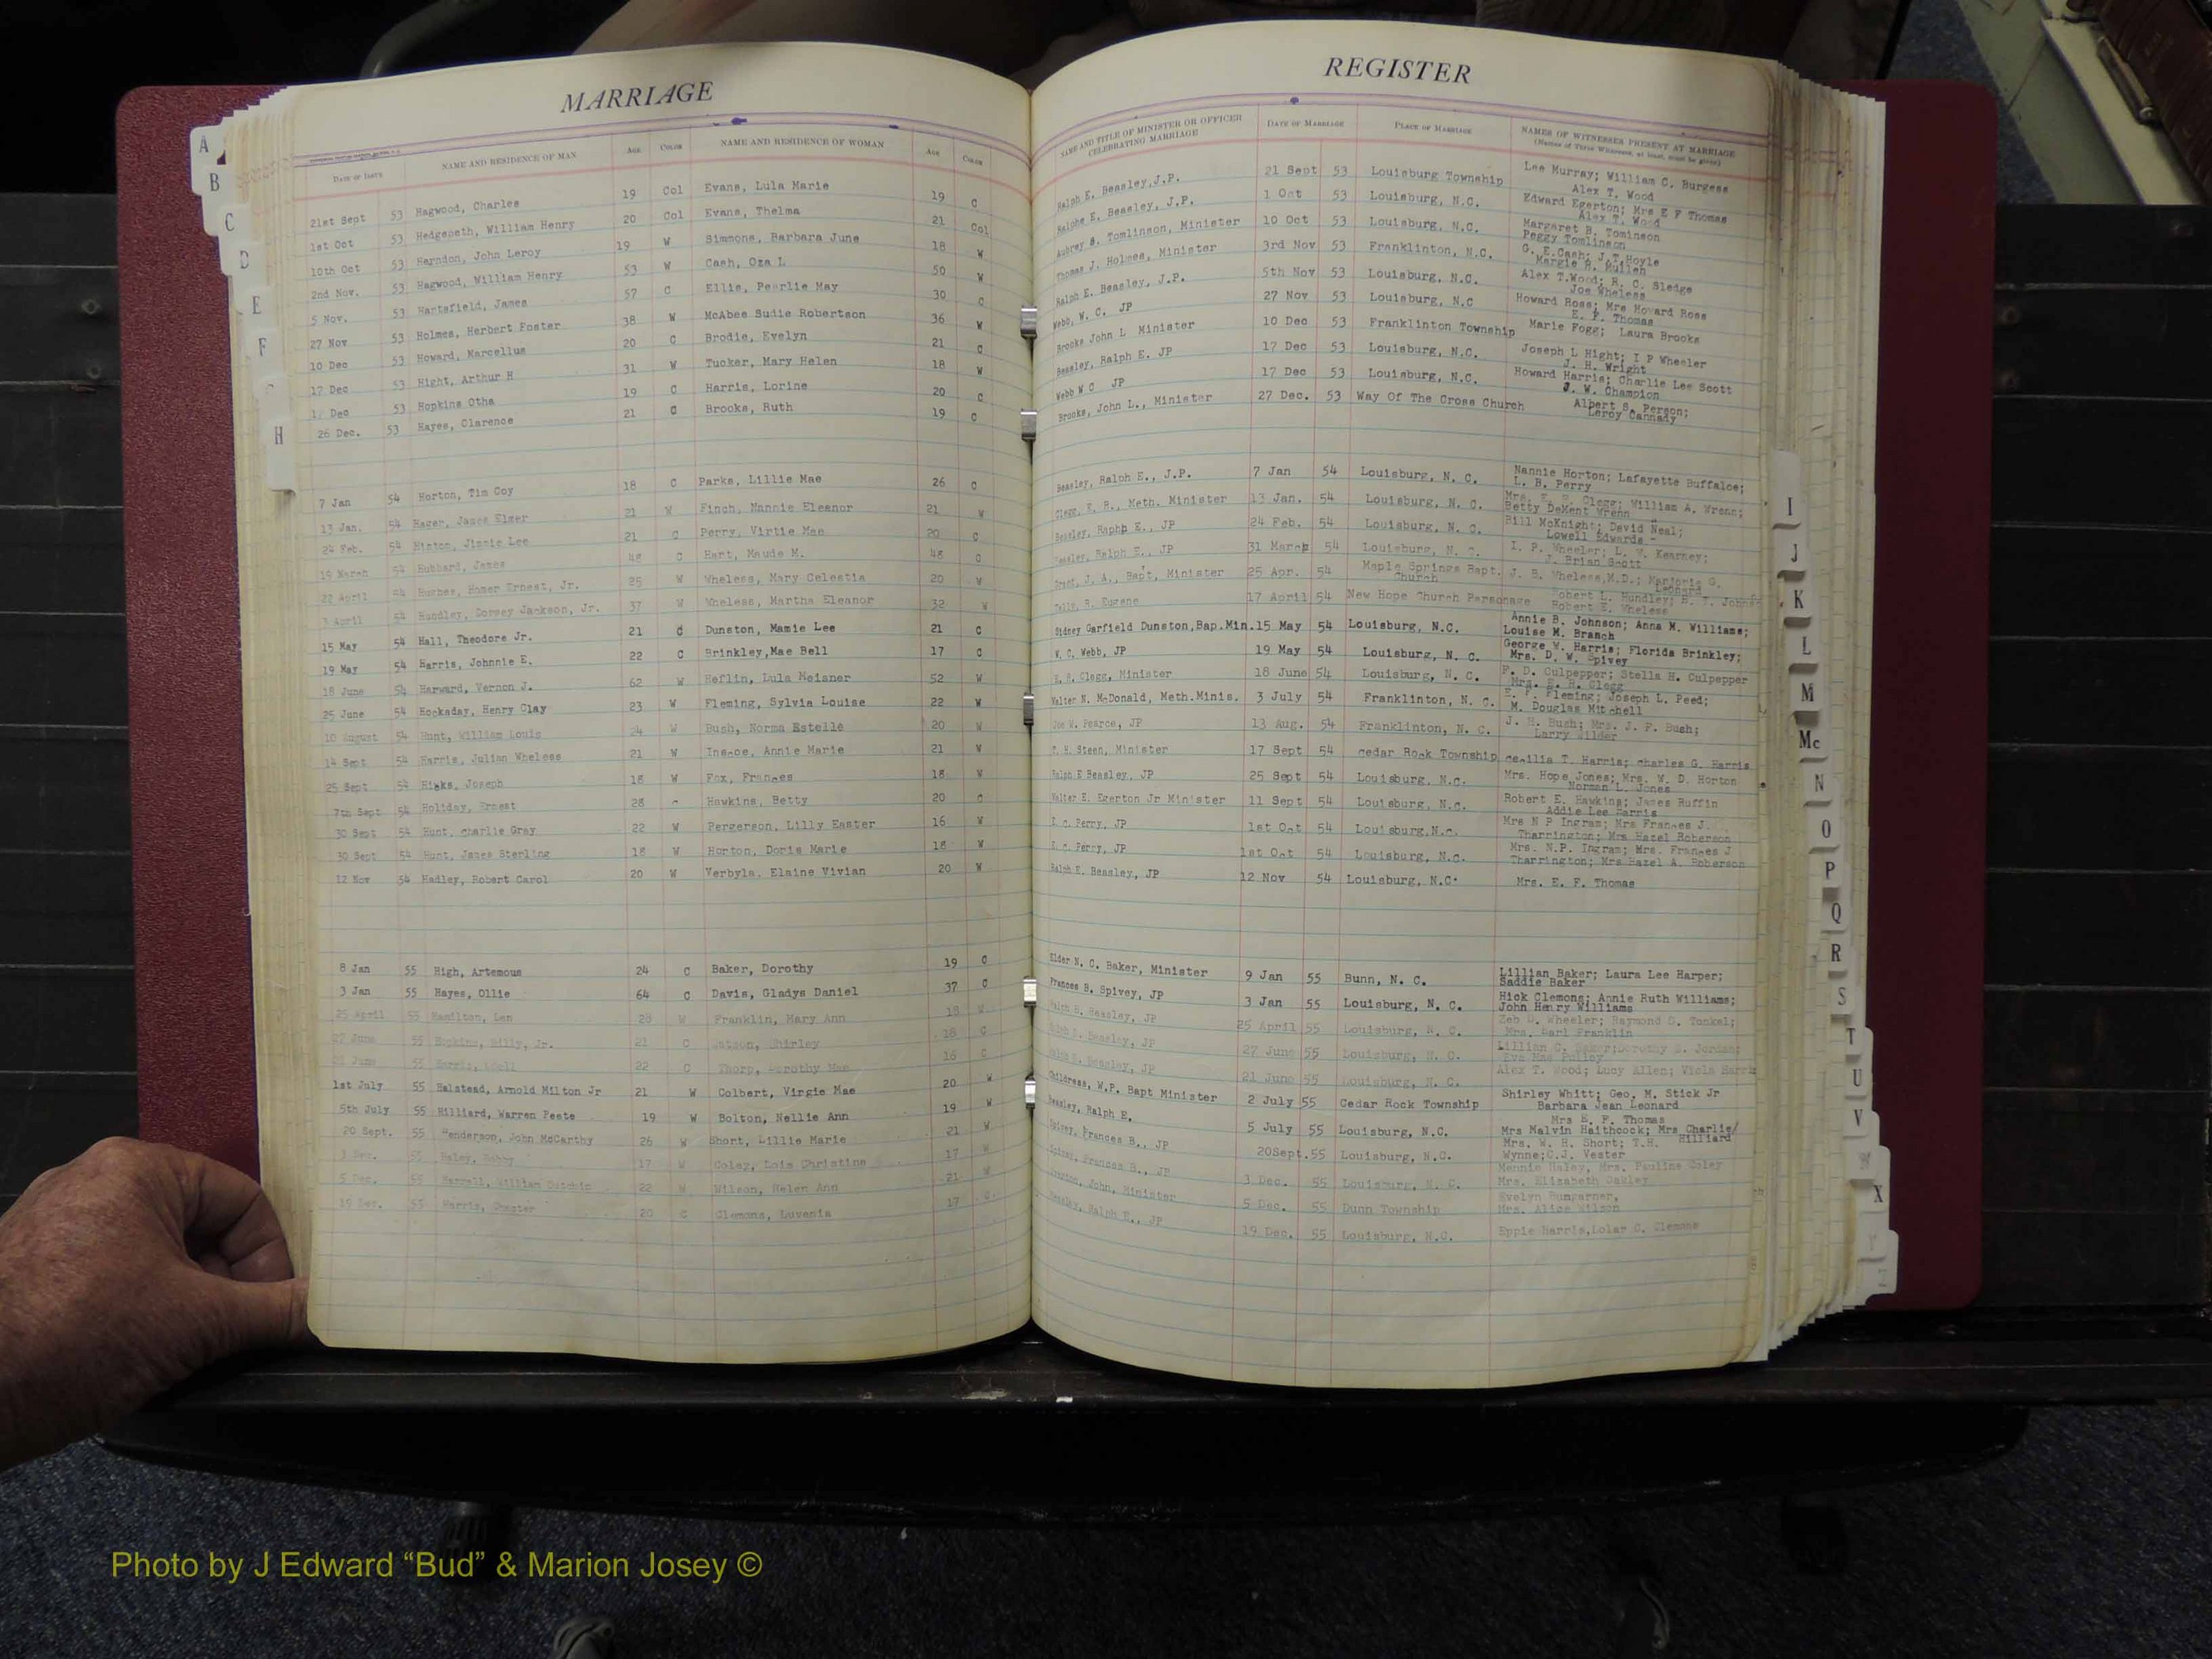 MARRIAGE
DATE OF ISSUE NAME AND RESIDENCE OF MAN AGE COLOR NAME AND RESIDENCE OF WOMAN AGE COLOR
21st Sept 53 Hagwood, Charles 19 Col Evans, Lula Marie 19 C
1st Oct 53 Hedgepeth, William Henry 20 Col Evans, Thelma 21 Col
10th Oct 53 Herndon, John Leroy 19 W Simmons, Barbara June 18 W
2nd Nov. 53 Hagwood, William Henry 53 W Cash, Oza L 50 W
5 Nov. 53 Hartsfield, James 57 C Ellis, Pearlie May 30 C
27 Nov 53 Holmes, Herbert Foster 38 W McAbee Sudie Robertson 36 W
10 Dec 53 Howard, Marcellus 20 C Brodie, Evelyn 21 C
17 Dec 53 Hight, Arthur H 31 W Tucker, Mary Helen 18 W
Dec 53 Hopkins Otha 19 C Harris, Lorine 20 C
26 Dec. 53 Hayes, Clarence 21 C Brooks, Ruth 19 C
7 Jan 54 Horton, Tim Coy 18 C Parks, Lillie Mae 26 C
13 Jan. 54 Hager, James Elmer 21 W Finch, Nannie Eleanor 21 W
24 Feb. 54 Hinton, Jimmie Lee 21 C Perry, Virtie Mae 20 C
19 March 54 Hubbard, James 48 C Hart, Maude M. 48 C
22 April 54 Hughes, Homer Ernest, Jr. 25 W Wheless, Mary Celestia 20 W
3 April 54 Hundley, Dorsey Jackson, Jr. 37 W Wheless, Martha Eleanor 32 W
15 May 54 Hall, Theodore Jr. 21 C Dunston, Mamie Lee 21 C
19 May 54 Harris, Johnnie E. 22 C Brinkley,Mae Bell 17 C
18 June 54 Harward, Vernon J. 62 W Heflin, Lula Meisner 52 W
25 June 54 Hockaday, Henry Clay 23 W Fleming, Sylvia Louise 22 W
10 August 54 Hunt, William Louis 24 W Bush, Norma Estelle 20 W
14 Sept 54 Harris, Julian Wheless 21 W Inscoe, Annie Marie 21 W
25 Sept 54 Hicks, Joseph 18 W Fox, Frances 18 W
7th Sept 54 Holiday, Ernest 28 c Hawkins, Betty 20 C
30 Sept 54 Hunt, charlie Gray 22 W Pergerson, Lilly Easter 16 W
30 Sept 54 Hunt, James Sterling 18 W Horton, Doris Marie 18 W
12 Nov 54 Hadley, Robert Carol 20 W Verbyla. Elaine Vivian 20 W
8 Jan 55 High, Artemous 24 C Baker, Dorothy 19 C
3 Jan 55 Hayes, Ollie 64 C Davis, Gladys Daniel 37 C
25 April 55 Hamilton, Len 28 W Franklin, Mary Ann 18 W
27 June 55 Hopkins, Billy, Jr. 21 C Shirley 18 C
June 55 Harris, 22 C Thorp, Dorothy Mae 16 C
1st July 55 Halstead, Arnold Milton Jr 21 W Colbert, Virgie Mae 20 W
5th July 55 Hilliard, Warren Peete 19 W Bolton, Nellie Ann 19 W
20 Sept. 55 Henderson, John McCarthy 26 W Short, Lillie Marie 21 W
55 Haley, Bobby 17 W Coley, Lois Christine 17 W
5 Dec. 55 William 22 W Wilson, Helen Ann 21 W
19 Dec. 55 Harris, 20 C Clemons, Luvenia 17 C
REGISTER
NAME AND TITLE OF MINISTER OR OFFICER CELEBRATING MARRIAGE DATE OF MARRIAGE PLACE OF MARRIAGE NAMES OF WITNESSES PRESENT AT MARRIAGE
(Names of Three Witnesses, at least, must be given)
Ralph E. Beasley,J.P. 21 Sept 53 Louisburg Township Lee Murray; William C. Burgess
Alex T. Wood
Ralphe E. Beasley, J.P. 1 Oct 53 Louisburg, N.C. Edward Egerton; Mrs E F Thomas
Alex T. Wood
Aubrey S. Tomlinson, Minister 10 Oct 53 Louisburg, N.C. Margaret B. Tominson
Peggy Tomlinson
Thomas J. Holmes, Minister 3rd Nov 53 Franklinton, N.C. G. E.Cash; J.T.Hoyle
Margie H. Mullen
Ralph E. Beasley, J.P. 5th Nov 53 Louisburg, N.C. Alex T.Wood; R. C. Sledge
Joe Wheless
Webb, W. C. JP 27 Nov 53 Louisburg, N.C Howard Ross; Mrs Howard Ross
E. F. Thomas
Brooks John L Minister 10 Dec 53 Franklinton Township Marie Fogg; Laura Brooks
Beasley, Ralph E. JP 17 Dec 53 Louisburg, N.C. Joseph L Hight; I P Wheeler
J. H. Wright
Webb W C JP 17 Dec 53 Louisburg, N.C. Howard Harris; Charlie Lee Scott
J. W. Champion
Brooks, John L., Minister 27 Dec. 53 Way Of The Cross Church Albert S. Person;
Leroy Cannady
Beasley, Ralph E., J.P. 7 Jan 54 Louisburg, N. C. Nannie Horton; Lafayette Buffaloe;
L. B. Perry
Clegg, E. R., Meth. Minister 13 Jan. 54 Louisburg, N. C. Mrs. E. R. Clegg; William A. Wrenn;
Betty DeMent Wrenn
Beasley, Raphp E., JP 24 Feb. 54 Louisburg, N. C. Bill McKnight; David Neal;
Lowell Edwards -
Beasley, Ralph E., JP 31 March 54 Louisburg, N. C. I. P. Wheeler; L. W. Kearney;
J. Brian Scott
Grant, J. A., Bapt, Minister 25 Apr. 54 Maple Springs Bapt. Church J. B. Wheless,M.D.; Marjorie G.
Leonard
R. Eugene 17 April 54 New Hope Church Personage Robert L. Hundley; H. T. Johns
Robert E. Wheless
Sidney Garfield Dunston,Bap.Min. 15 May 54 Louisburg, N.C. Annie B. Johnson; Anna M. Williams;
Louise M. Branch
W. C. Webb, JP 19 May 54 Louisburg, N. C. George W. Harris; Florida Brinkley;
Mrs. D. W. Spivey
E. R. Clegg, Minister 18 June 54 Louisburg, N. C. F. D. Culpepper; Stella H. Culpepper
Mrs. E. R. Clegg
Walter N. McDonald, Meth.Minis. 3 July 54 Franklinton, N. C. E. F. Fleming; Joseph L. Peed;
M. Douglas Mitchell
Joe W. Pearce, JP 13 Aug. 54 Franklinton, N. C. J. H. Bush; Mrs. J. F. Bush;
Larry Wilder
H. Steen, Minister 17 Sept 54 cedar Rock Township cecilia T. Harris; charles G. Harris
Ralph E Beasley, JP 25 Sept 54 Louisburg, N.C. Mrs. Hope Jones; Mrs. W. D. Horton
Norman L. Jones
Walter E. Egerton Jr Minister 11 Sept 54 Louisburg, N.C. Robert E. Hawkins; James Ruffin
Addie Lee Harris
Perry, JP 1st Oct 54 Louisburg,N.c. Mrs N P Ingram; Mrs Frances J.
Tharrington; Mrs Hazel Roberson
Perry, JP 1st Oct 54 Louisburg, N.c. Mrs. N.P. Ingram; Mrs. Frances J
Tharrington; Mrs Hazel A. Roberson
Ralph E. Beasley, JP 12 Nov 54 Louisburg, N.C. Mrs. E. F. Thomas
Elder N. C. Baker, Minister 9 Jan 55 Bunn, N. C. Lillian Baker; Laura Lee Harper;
Saddie Baker
Frances B. Spivey, JP 3 Jan 55 Louisburg, N. C. Hick Clemons; Annie Ruth Williams;
John Henry Williams
Ralph E. Beasley, JP 25 April 55 Louisburg, N. C. Zeb D. Wheeler; Raymond D. Tonkel;
Mrs. Earl Franklin
Ralph E. Beasley, JP 27 June 55 Louisburg, N. C. Lillian C. Baker;Dorothy B. Jordan;
Eva Mae Pulley
Ralph E. Beasley, JP 21 June 55 Louisburg, N. C. Alex T. Wood; Lucy Allen; Viola Harris
Childress, W.P. Bapt Minister 2 July 55 Cedar Rock Township Shirley Whitt; Geo. M. Stick Jr
Barbara Jean Leonard
Beasley, Ralph E. 5 July 55 Louisburg, N.C. Mrs E. F. Thomas
Mrs Malvin Haithcock; Mrs Charlie/
Hilliard
Spivey, Frances B., JP 20Sept.55 Louisburg, N.C. Mrs. W. R. Short; T.H.
Wynne;C.J. Vester
Spivey, Frances B., JP 3 Dec. 55 Louisburg, N. C. Mennie Haley, Mrs. Pauline Coley
Mrs. Elizabeth Oakley
John, Minister 5 Dec. 55 Dunn Township Evelyn Bumgarner,
Mrs. Alice Wilson
Beasley, Ralph E., JP 19 Dec. 55 Louisburg, N.C. Eppie Harris,Lolar C. Clemons
A
B
C
D
E
F
H
I
J
K
L
M
Mc
N
O
P
Q
R
S
T
U
V
W
X
Y
Z
Photo by J Edward “Bud” & Marion Josey ©